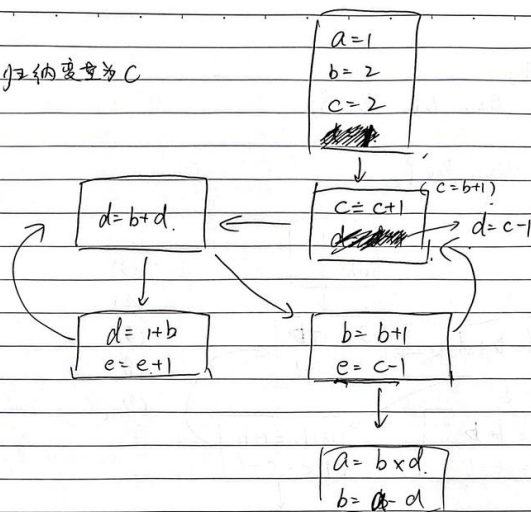 归纳变量为 C
a=1
b=2
c=2
c=c+1
(c=b+1)
d=c-1
d=b+d.
d=1+b
e=e+1
b=b+1
e=c-1
a=b×d.
b= - d